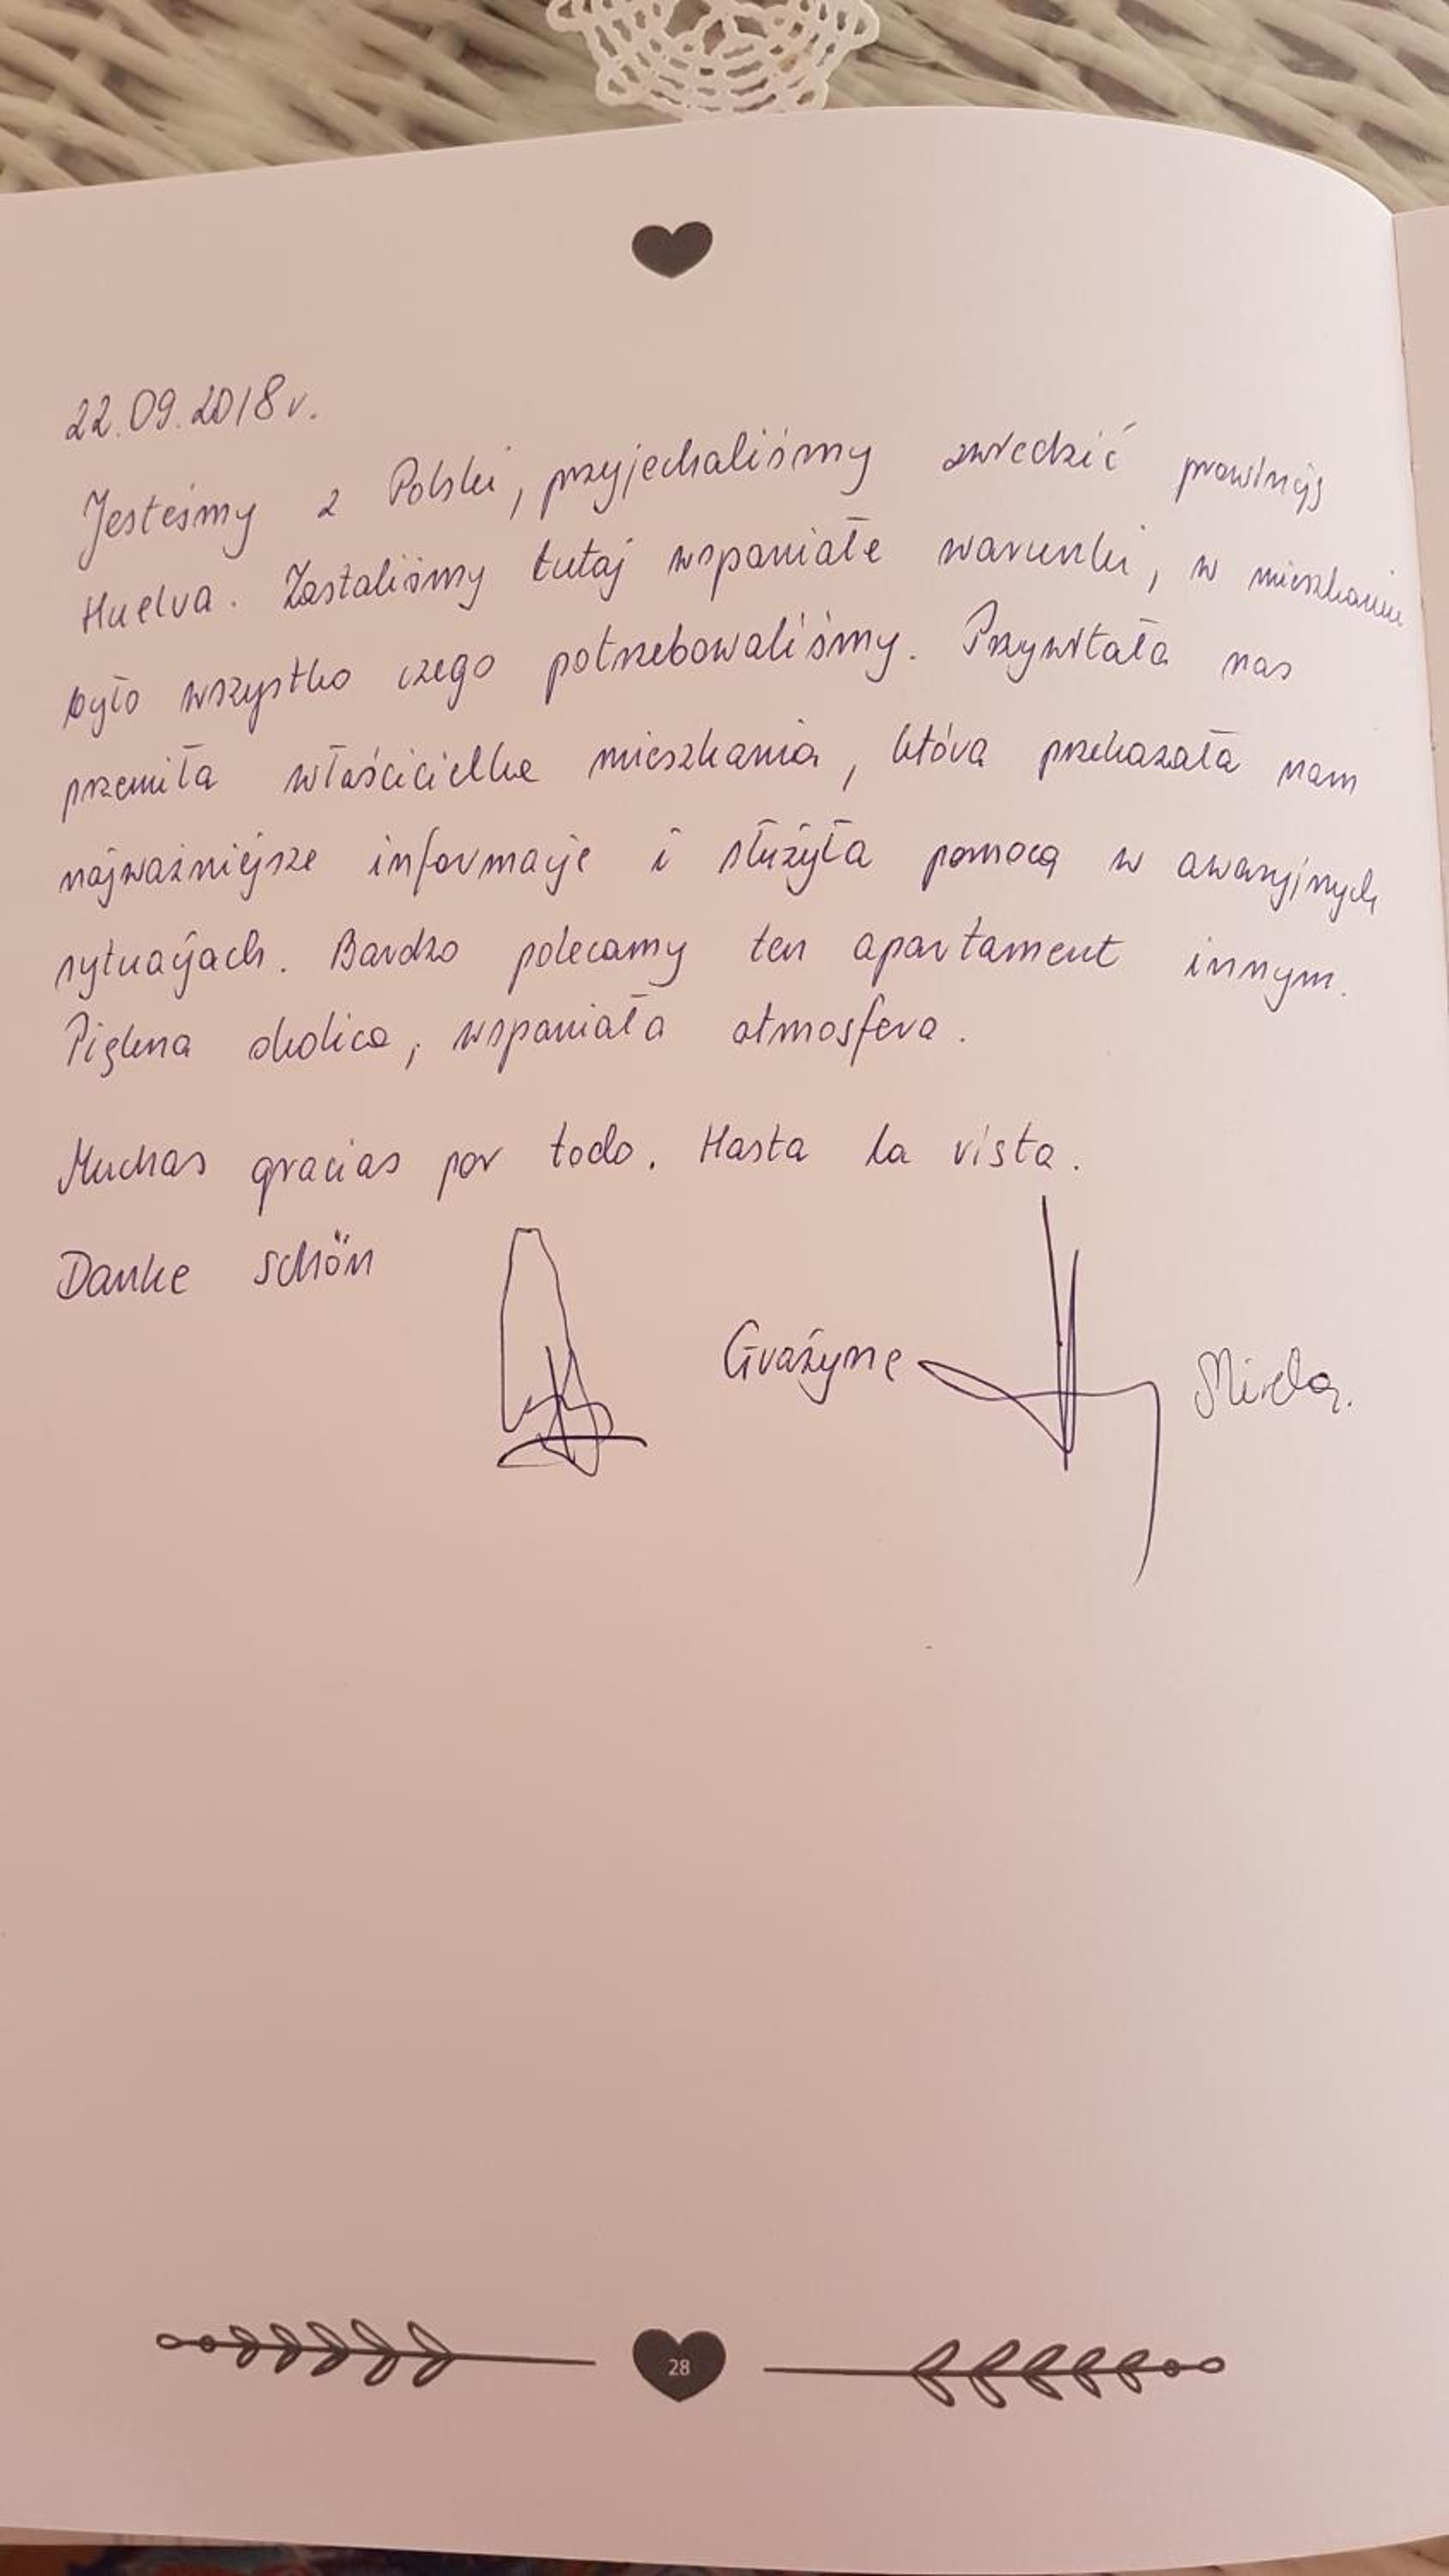 22.09.2018 r.
Jesteśmy z Polski, przyjechaliśmy zwiedzić prowincję
Huelva. Zastaliśmy tutaj wspaniałe warunki, w mieszkaniu
było wszystko czego potrzebowaliśmy. Przywitała nas
przemiła właścicielka mieszkania, która przekazała nam
najważniejsze informacje i służyła pomocą w awaryjnych
sytuacjach. Bardzo polecamy ten apartament innym.
Piękna okolica, wspaniała atmosfera.
Muchas gracias por todo. Hasta la vista.
Danke schön
Grażyna
28